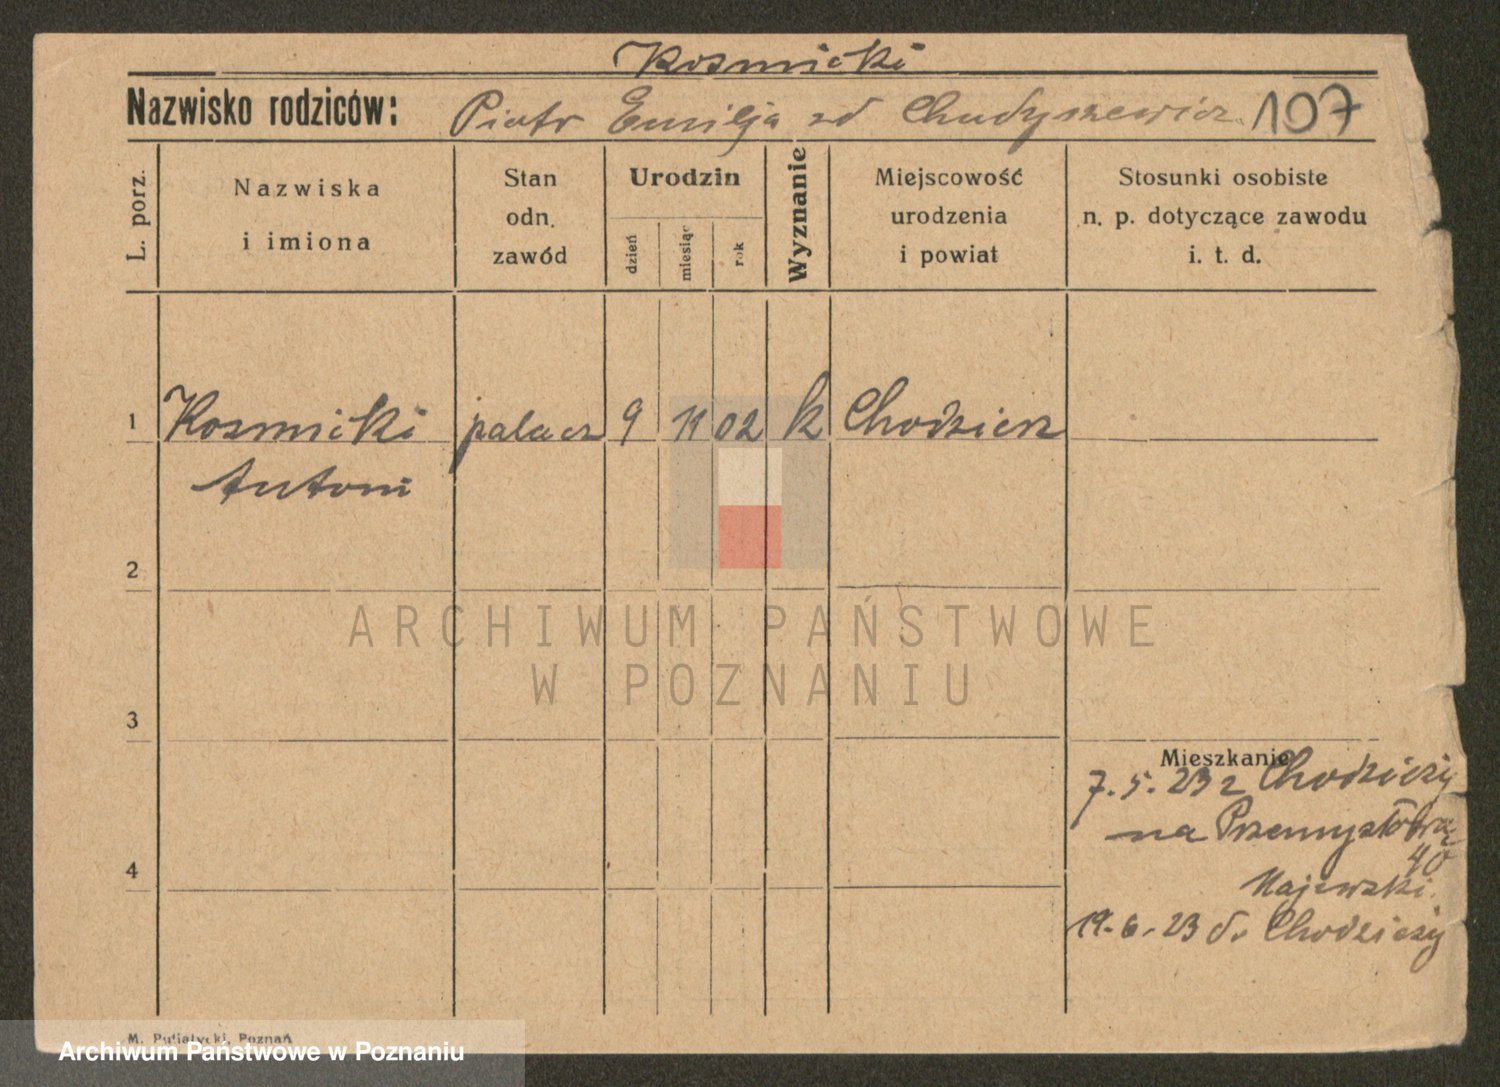 Kosmicki
Nazwisko rodziców: Piotr Emilja zd Chudyszewicz. 107
L. porz.
Nazwiska
i imiona
Stan
odn.
zawód
Urodzin
dzień
miesiąc
rok
Wyznanie
Miejscowość
urodzenia
i powiat
Stosunki osobiste
n. p. dotyczące zawodu
i. t. d.
1 Kosmicki palacz 9 11 02 k Chodzież
Antoni
2
3
4
Mieszkanie
7. 5. 23 z Chodzieży
na Przemysłową
40
Majewski.
19. 6. 23 d. Chodzieży
ARCHIWUM PAŃSTWOWE
W POZNANIU
M. Putiatycki, Poznań
Archiwum Państwowe w Poznaniu